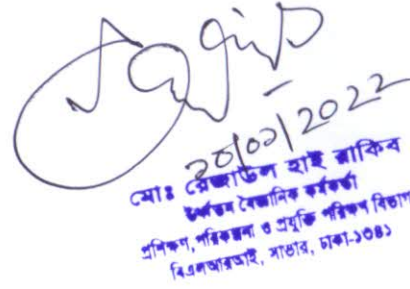 ২০/০১/2022
মোঃ রেজাউল হাই রাকিব
ঊর্ধ্বতন বৈজ্ঞানিক কর্মকর্তা
প্রশিক্ষণ, পরিকল্পনা ও প্রযুক্তি পরিক্ষণ বিভাগ
বিএলআরআই, সাভার, ঢাকা-১৩৪১